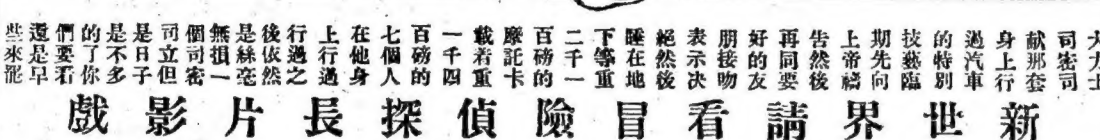 大力士
司密司
献那套
身上行
過汽車
的特別
技藝臨
期先向
上帝禱
告然後
再同要
好的友
朋接吻
表示决
絕然後
睡在地
下等重
二千一
百磅的
摩託卡
載着重
一千四
百磅的
七個人
在他身
上行過
行過之
後依然
是絲毫
無損一
個司密
司立但
是日子
是不多
的了你
們要看
還是早
些來罷
新世界請看冒險偵探長片影戲